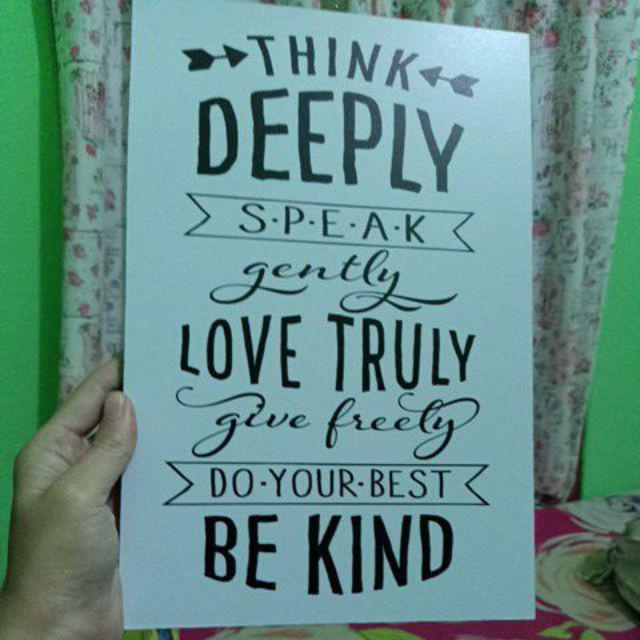 THINK
DEEPLY
S·P·E·A·K
gently
LOVE TRULY
give freely
DO·YOUR·BEST
BE KIND